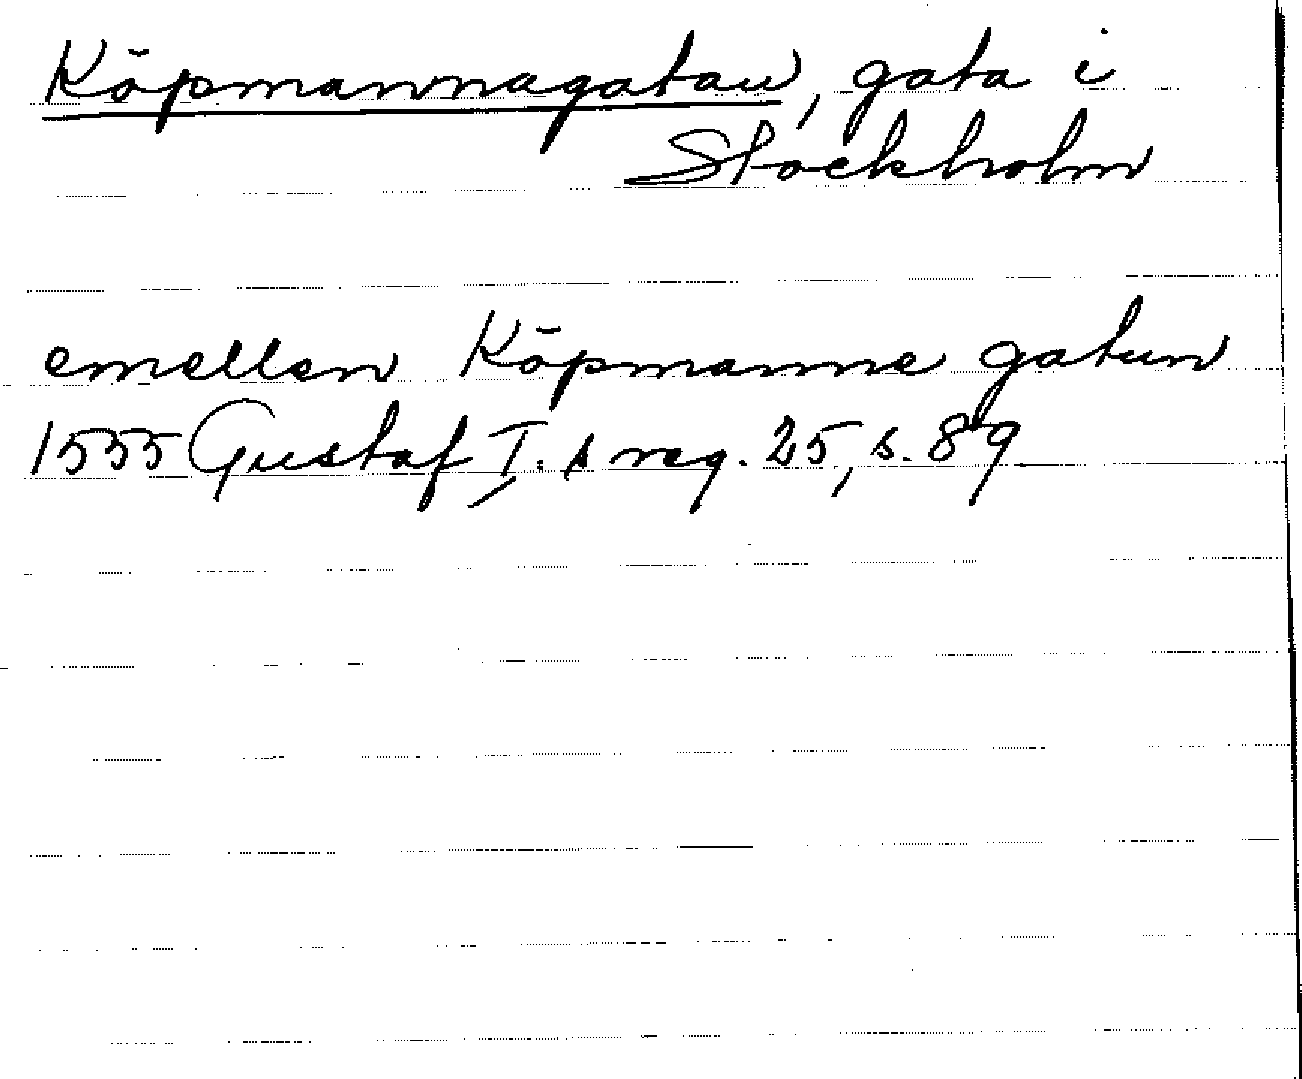 Köpmannagatan, gata i
Stockholm
emellen Köpmanne gatun
1555 Gustaf I. s reg. 25, s. 89